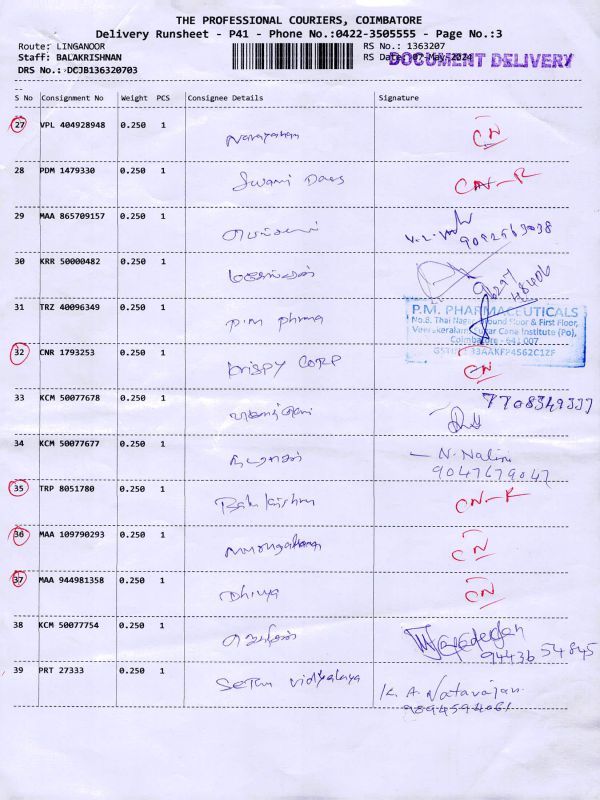 THE PROFESSIONAL COURIERS, COIMBATORE
Delivery Runsheet - P41 - Phone No.:0422-3505555 - Page No.:3
Route: LINGANOOR
RS No.: 1363207
Staff: BALAKRISHNAN
RS Date: 07-May-2024
DOCUMENT DELIVERY
DRS No.: DCJB136320703
S No Consignment No Weight PCS Consignee Details Signature
27 VPL 404928948 0.250 1 Narayanan CN
28 PDM 1479330 0.250 1 Swami Dass CN-R
29 MAA 865709157 0.250 1 9092563038
30 KRR 50000482 0.250 1 96297 48406
31 TRZ 40096349 0.250 1 P.M phrma
P.M. PHARMACEUTICALS
No.8, Thai Nagar, Ground Floor & First Floor,
Veerakeralam, Sugar Cane Institute (Po),
Coimbatore - 641 007
GSTIN: 33AAKFP4562C1ZF
32 CNR 1793253 0.250 1 KRISPY CORP CN
33 KCM 50077678 0.250 1
34 KCM 50077677 0.250 1 நடராசன் N. Nalini
9047679047
35 TRP 8051780 0.250 1 Bala krishna CN-R
36 MAA 109790293 0.250 1 CN
37 MAA 944981358 0.250 1 Dhivya CN
38 KCM 50077754 0.250 1
94436 54845
39 PRT 27333 0.250 1 Sethu vidhyalaya K. A. Natarajan
9894594061